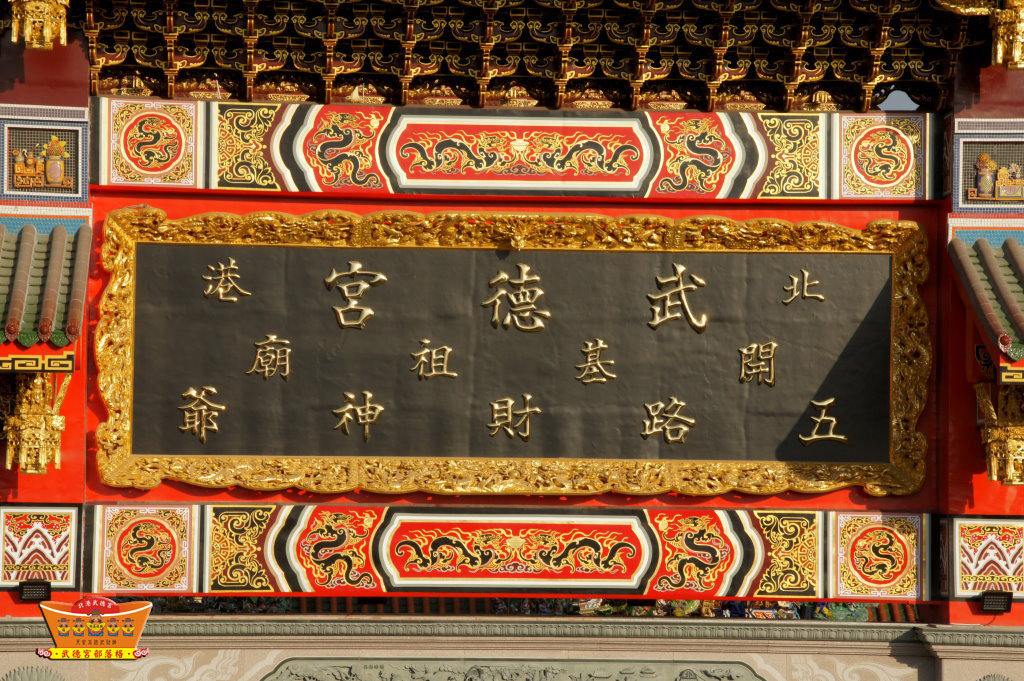 北武德宮港
開基祖廟
五路財神爺
北港武德宮
武德宮部落格